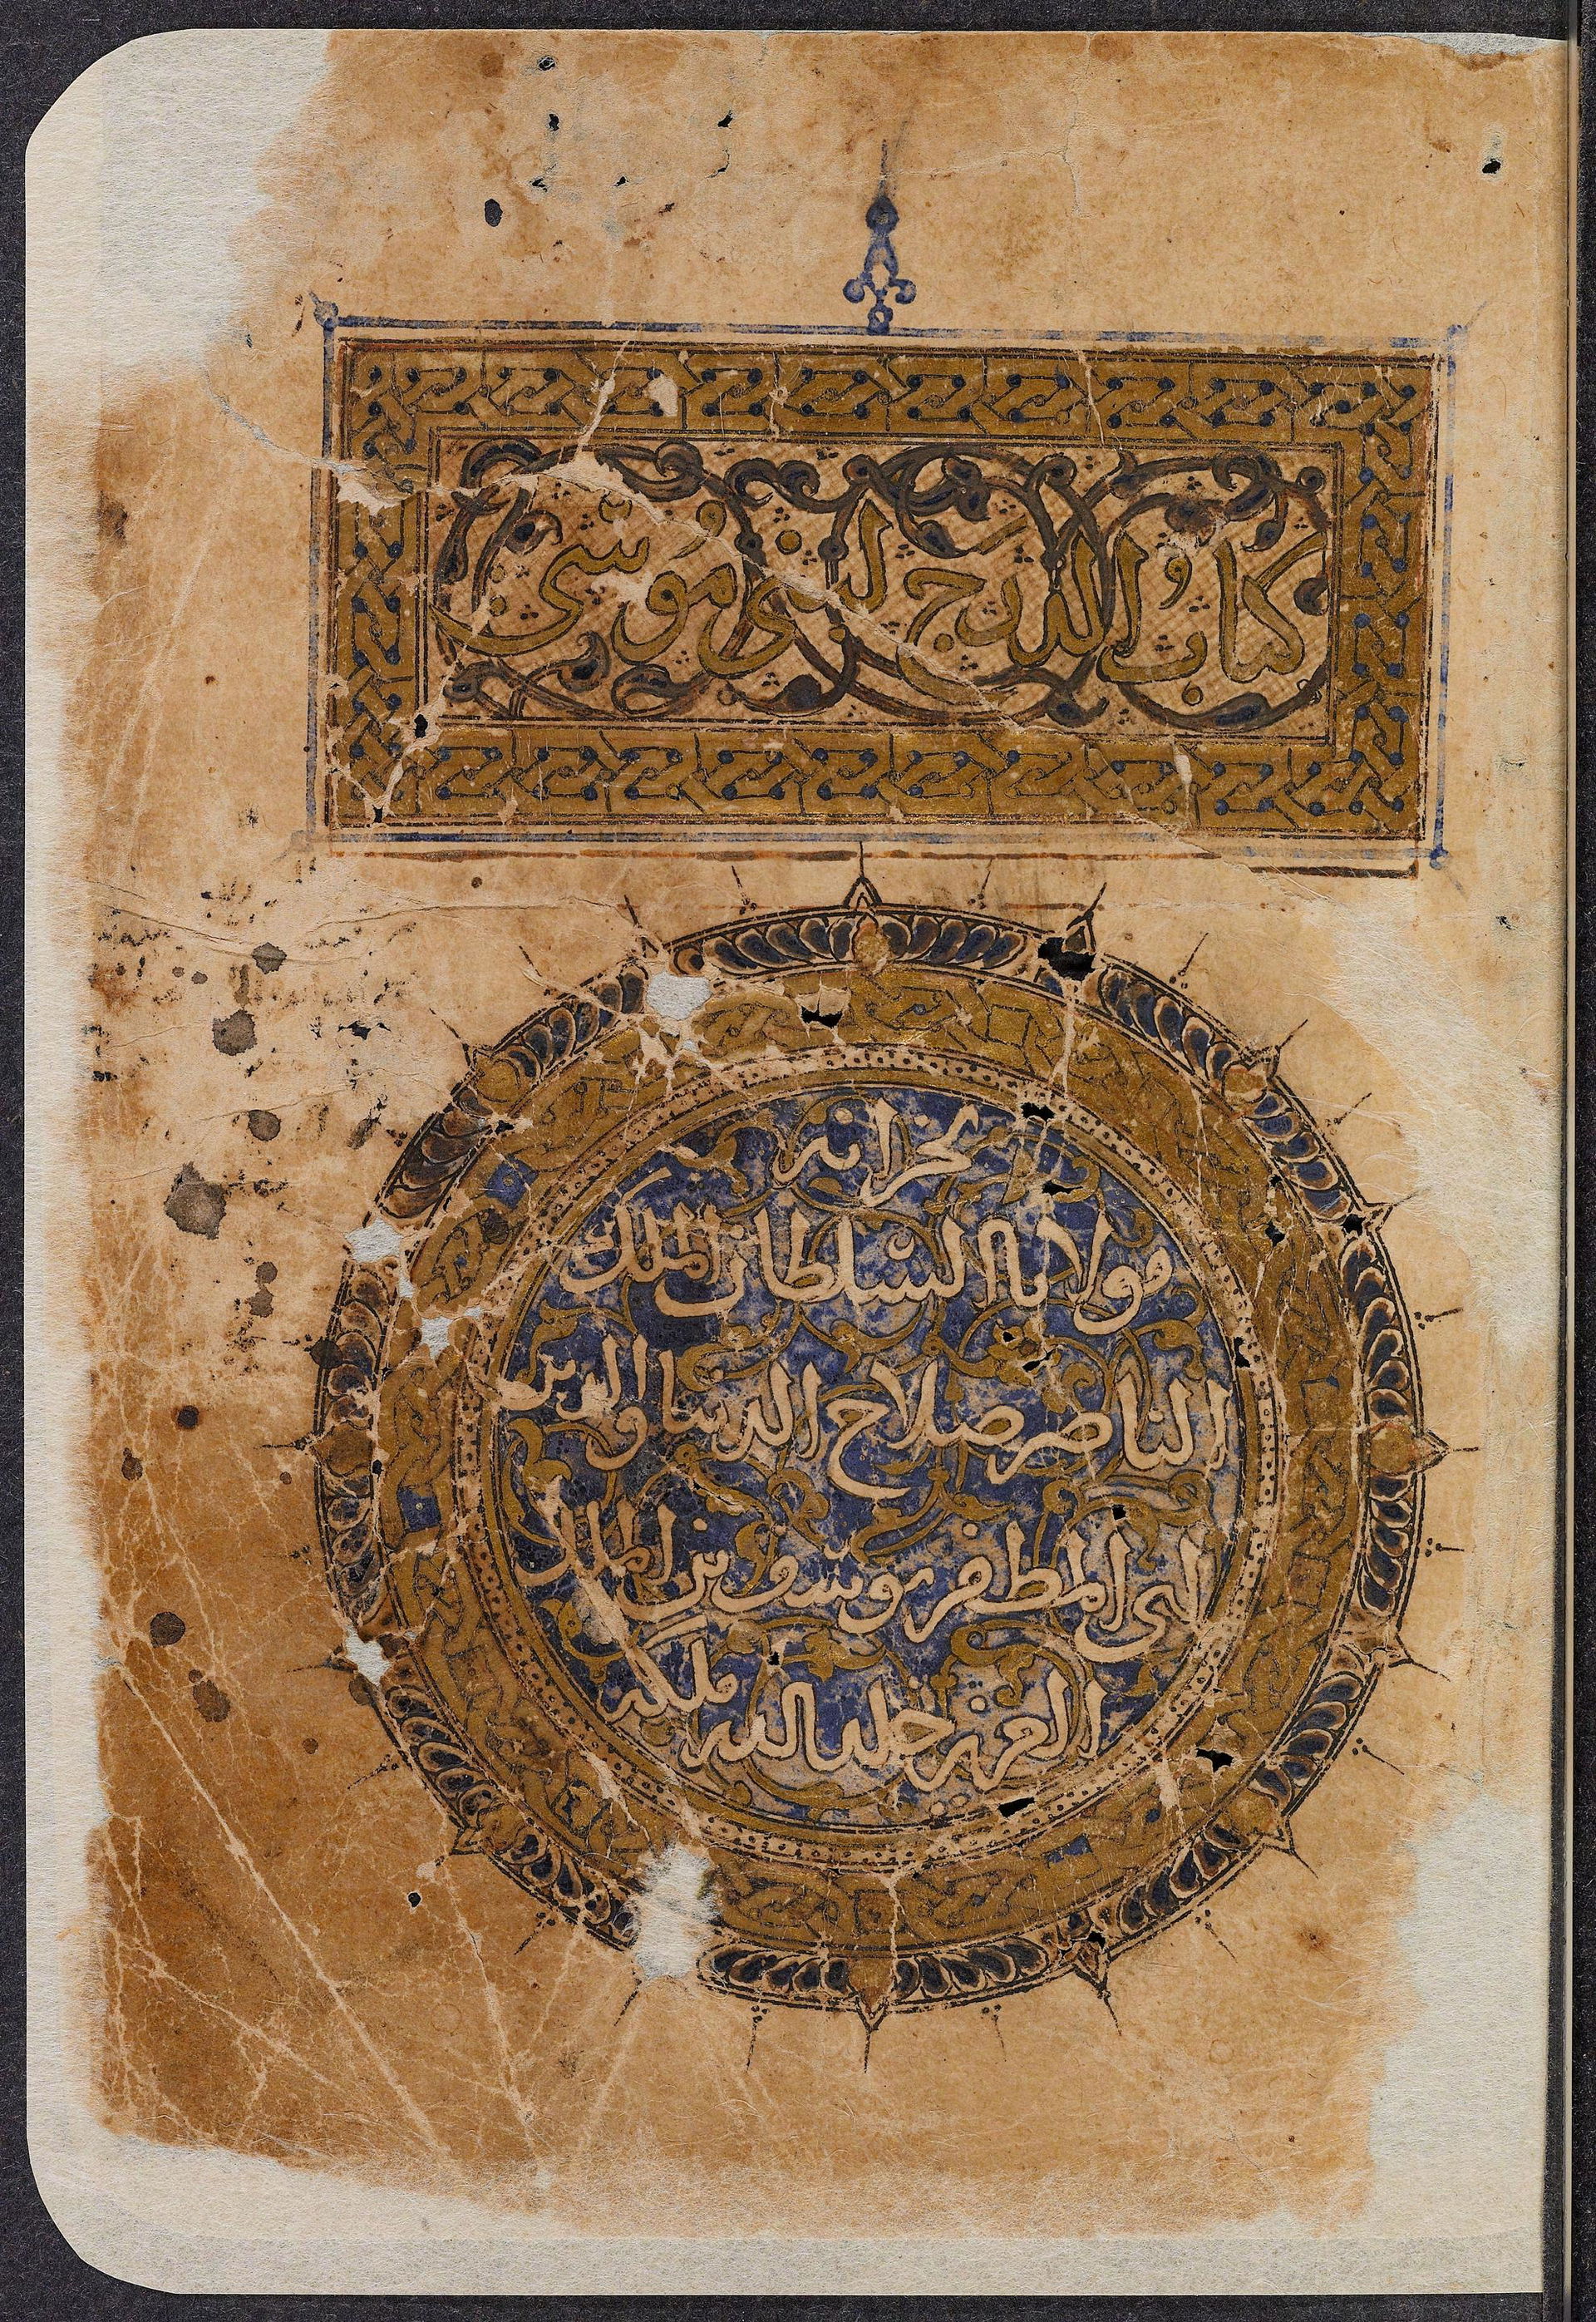 كتاب الدرج لبنى موسى
بخزانة
مولانا السلطان الملك
الناصر صلاح الدنيا والدين
ابى المظفر يوسف بن الملك
العزيز خلد الله ملكه